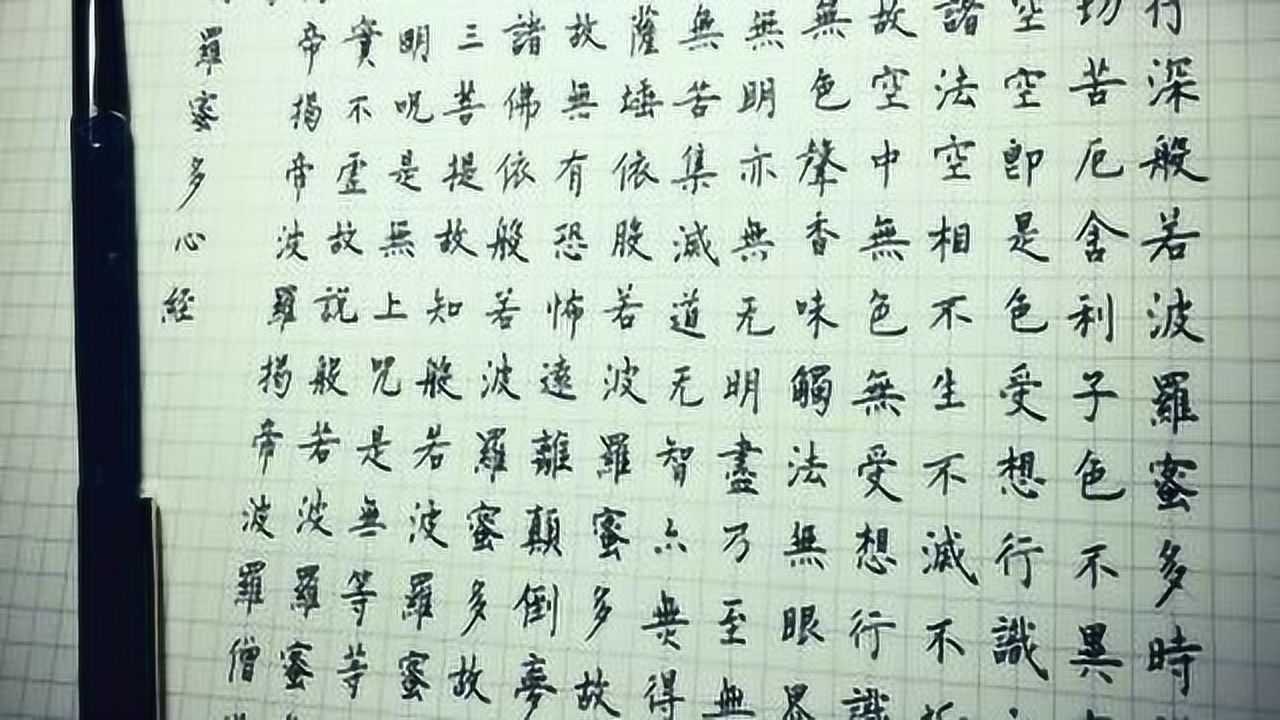 行深般若波羅蜜多時
切苦厄舍利子色不異
空空即是色受想行識
諸法空相不生不滅不
故空中無色無受想行識
無色聲香味觸法無眼界
無明亦無无明盡乃至無
無苦集滅道无智亦無得
薩埵依般若波羅蜜多故
故無有恐怖遠離顛倒夢
諸佛依般若波羅蜜多故
三菩提故知般若波羅蜜
明呪是無上咒是無等等
實不虛故說般若波羅蜜
帝揭帝波羅揭帝波羅僧
羅蜜多心經